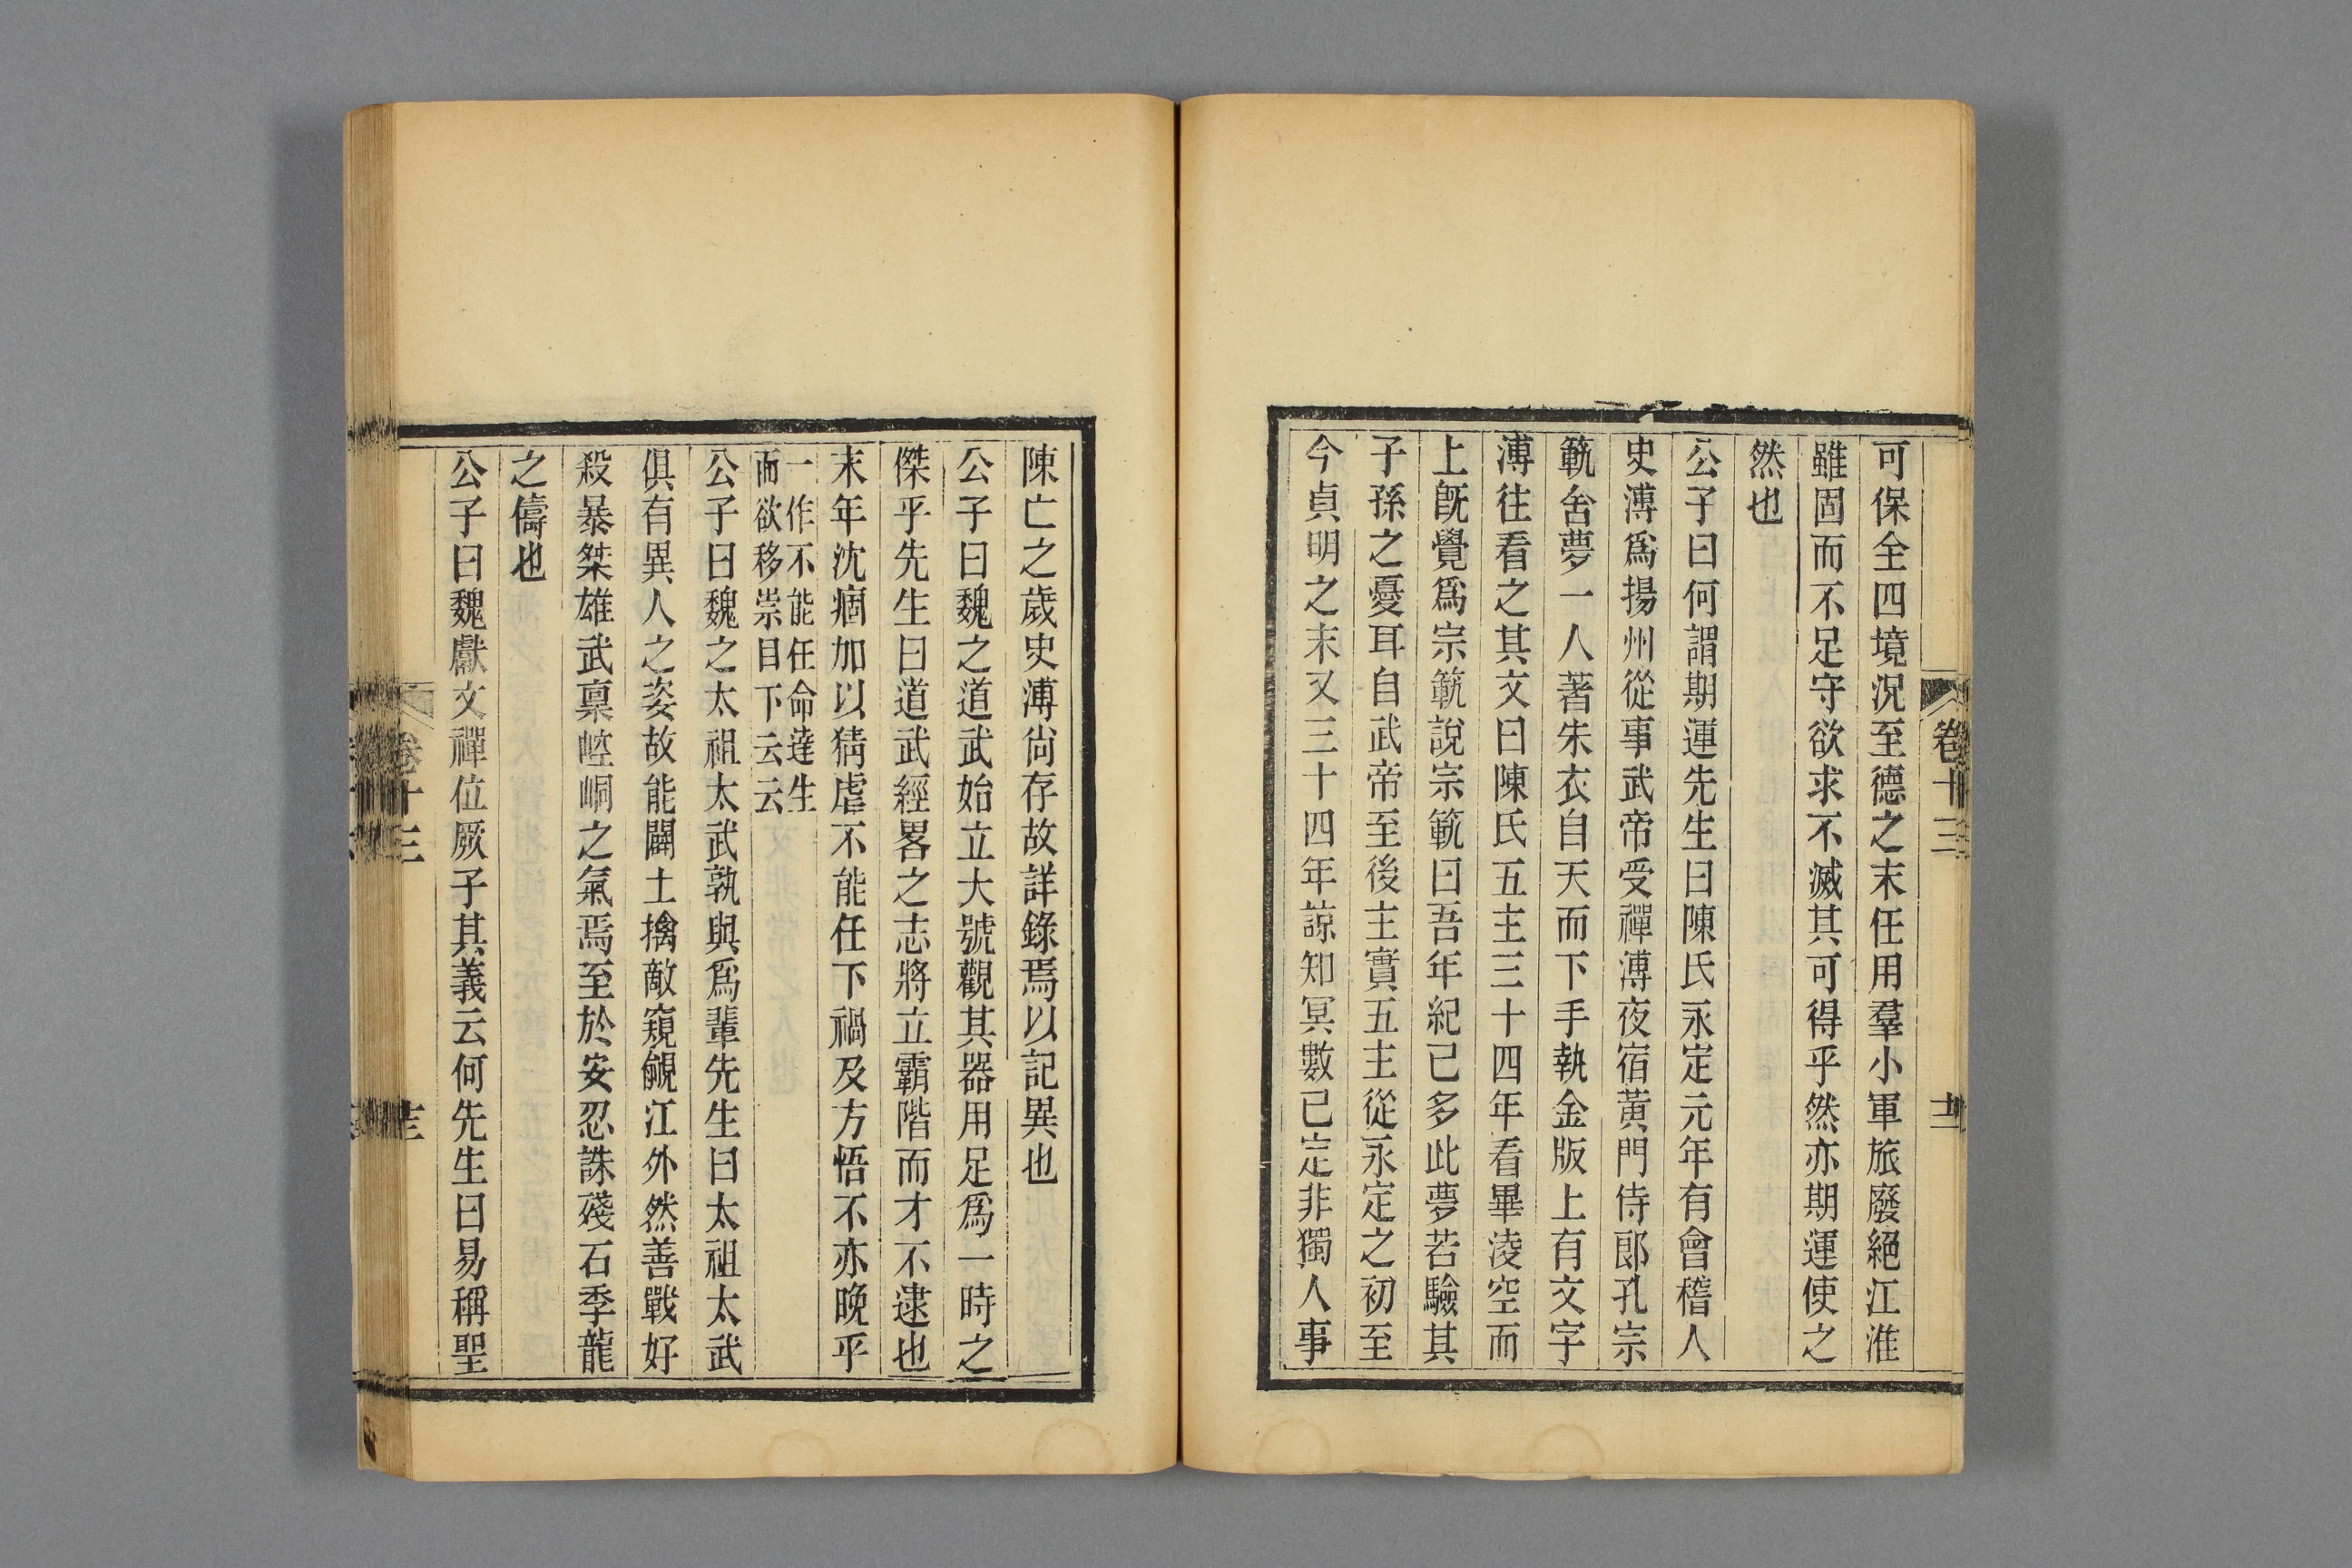 可保全四境況至德之末任用羣小軍旅廢絕江淮
雖固而不足守欲求不滅其可得乎然亦期運使之
然也
公子曰何謂期運先生曰陳氏永定元年有會稽人
史溥爲揚州從事武帝受禪溥夜宿黃門侍郎孔宗
範舍夢一人著朱衣自天而下手執金版上有文字
溥往看之其文曰陳氏五主三十四年看畢凌空而
上旣覺爲宗範說宗範曰吾年紀已多此夢若驗其
子孫之憂耳自武帝至後主實五主從永定之初至
今貞明之末又三十四年諒知冥數已定非獨人事
卷十三
十二
陳亡之歲史溥尙存故詳錄焉以記異也
公子曰魏之道武始立大號觀其器用足爲一時之
傑乎先生曰道武經畧之志將立霸階而才不逮也
末年沈痼加以猜虐不能任下禍及方悟不亦晚乎
一作不能任命達生
而欲移祟目下云云
公子曰魏之太祖太武孰與爲輩先生曰太祖太武
俱有異人之姿故能闢土擒敵窺覦江外然善戰好
殺暴桀雄武稟崆峒之氣焉至於安忍誅殘石季龍
之儔也
公子曰魏獻文禪位厥子其義云何先生曰易稱聖
卷十三